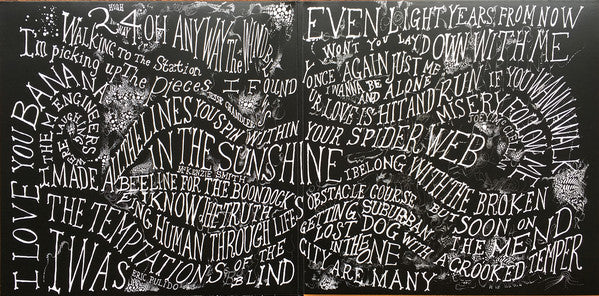 HIGH
24 OH ANYWAY THE WIND
WALKING TO THE STATION
I'm picking up The pieces I FOUND
I LOVE YOU BANANA
THEM ENGINEERS
JESSE CHANDLER
THE LINES YOU SPIN WITHIN
IN THE SUNSHINE
MCKENZIE SMITH
I MADE A BEELINE FOR THE BOONDOCKS
KNOW THE TRUTH
HUMAN THROUGH LIFE'S
THE TEMPTATIONS OF THE BLIND
I WAS
ERIC PULIDO
EVEN EIGHT YEARS FROM NOW
WON'T YOU LAY DOWN WITH ME
ONCE AGAIN JUST ME
I WANNA BE ALONE AND RUN IF YOU WANNA WALK
OUR LOVE IS HIT AND MISERY
FOLLOW ME
YOUR SPIDER WEB
I BELONG WITH THE BROKEN
OBSTACLE COURSE BUT SOON ON THE MEND
GETTING SUBURBAN
LOST DOG WITH A CROOKED TEMPER
IN THE ONE
CITY ARE MANY